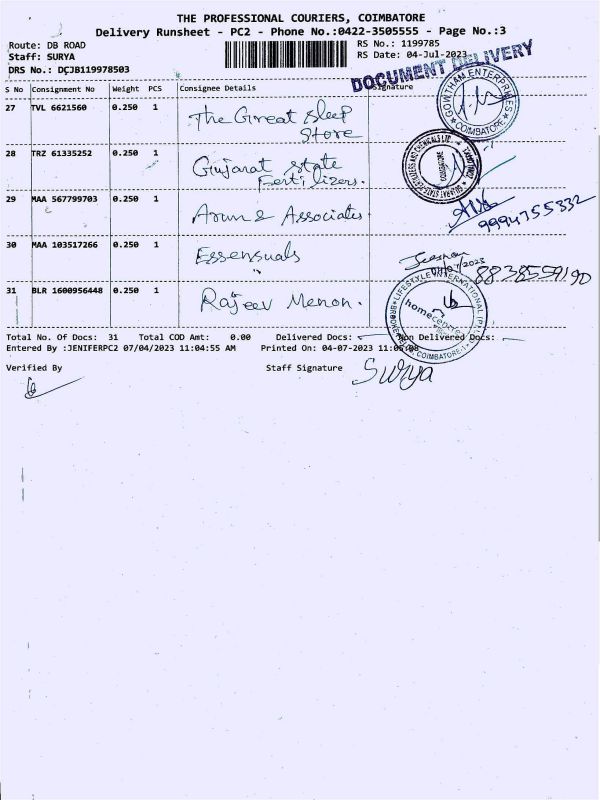 THE PROFESSIONAL COURIERS, COIMBATORE
Delivery Runsheet - PC2 - Phone No.:0422-3505555 - Page No.:3
Route: DB ROAD
RS No.: 1199785
Staff: SURYA
RS Date: 04-Jul-2023
DRS No.: DCJB119978503
DOCUMENT DELIVERY
S No Consignment No Weight PCS Consignee Details Signature
27 TVL 6621560 0.250 1 The Great Sleep
Store
GOWTHAM ENTERPRISES COIMBATORE
28 TRZ 61335252 0.250 1 Gujarat State
Fertilizers.
29 MAA 567799703 0.250 1 Arun & Associates
9994755332
30 MAA 103517266 0.250 1 Essensuals
8838559190
31 BLR 1600956448 0.250 1 Rajeev Menon.
LIFESTYLE INTERNATIONAL (P) L
homecentre
COIMBATORE
Total No. Of Docs: 31 Total COD Amt: 0.00 Delivered Docs: Non Delivered Docs:
Entered By :JENIFERPC2 07/04/2023 11:04:55 AM Printed On: 04-07-2023
Verified By Staff Signature Surya